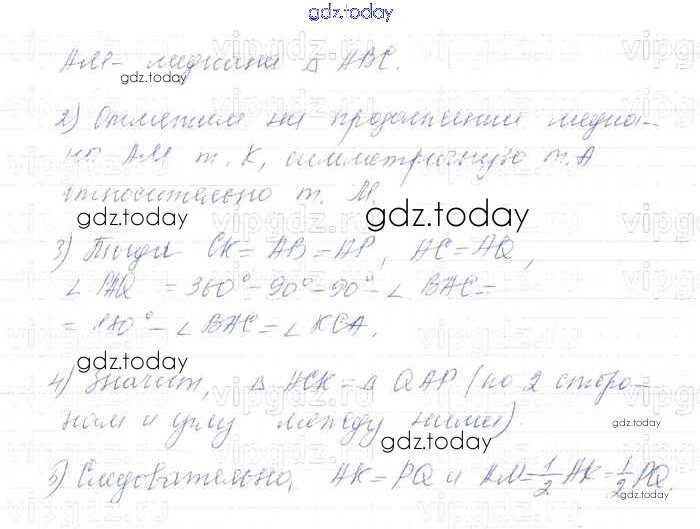 gdz.today
АМ - медиана △ ABC.
gdz.today
2) Отметим на продолжении медиа-
ны АМ т. К, симметричную т. А
относительно т. М.
gdz.today
gdz.today
3) Тогда CK = AB = AP, AC = AQ,
∠ PAQ = 360° - 90° - 90° - ∠ BAC =
= 180° - ∠ BAC = ∠ KCA.
gdz.today
4) Значит, △ ACK = △ QAP (по 2 сторо-
нам и углу между ними).
gdz.today
gdz.today
5) Следовательно, AK = PQ и AM = 1/2 AK = 1/2 PQ.
gdz.today
gdz.today